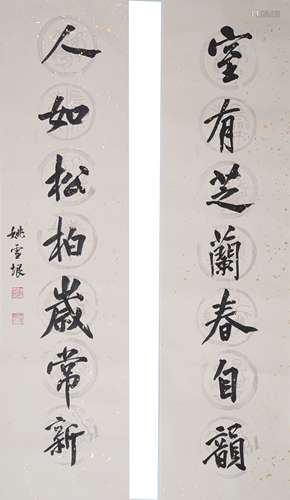 室有芝蘭春自韻
人如松柏歲常新
姚雪垠